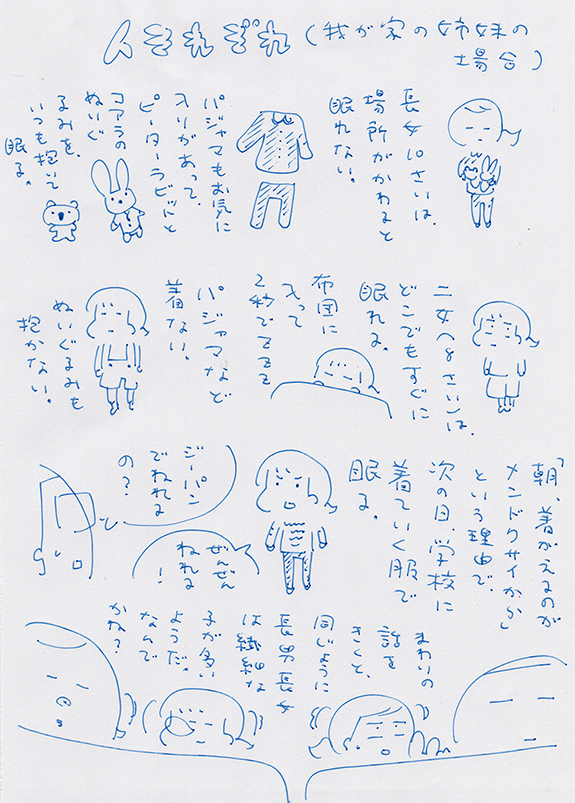 人それぞれ(我が家の姉妹の
場合)
長女10さいは、
場所がかわると
眠れない。
パジャマもお気に
入りがあって、
ピーターラビットと
コアラの
ぬいぐ
るみを、
いつも抱いて
眠る。
二女8さいは、
どこでもすぐに
眠れる。
布団に
入って
2秒でZZZ
パジャマなど
着ない。
ぬいぐるみも
抱かない。
「朝、着がえるのが
メンドクサイから」
という理由で、
次の日、学校に
着ていく服で
眠る。
ジーパン
でねれる
の?
ぜんぜん
ねれる
!
まわりの
話を
きくと、
同じように
長男長女
は繊細な
子が多い
ようだ。
なんで
かね?